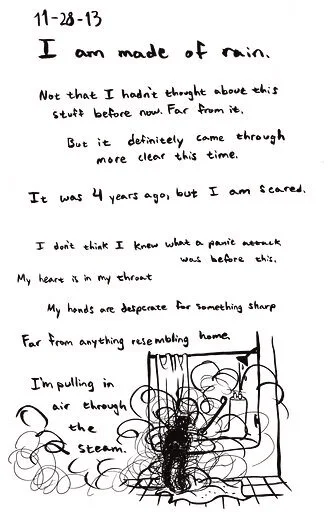 11-28-13
I am made of rain.
Not that I hadn't thought about this
stuff before now. Far from it.
But it definitely came through
more clear this time.
It was 4 years ago, but I am scared.
I don't think I knew what a panic attack
was before this.
My heart is in my throat
My hands are desperate for something sharp
Far from anything resembling home.
I'm pulling in
air through
the
steam.